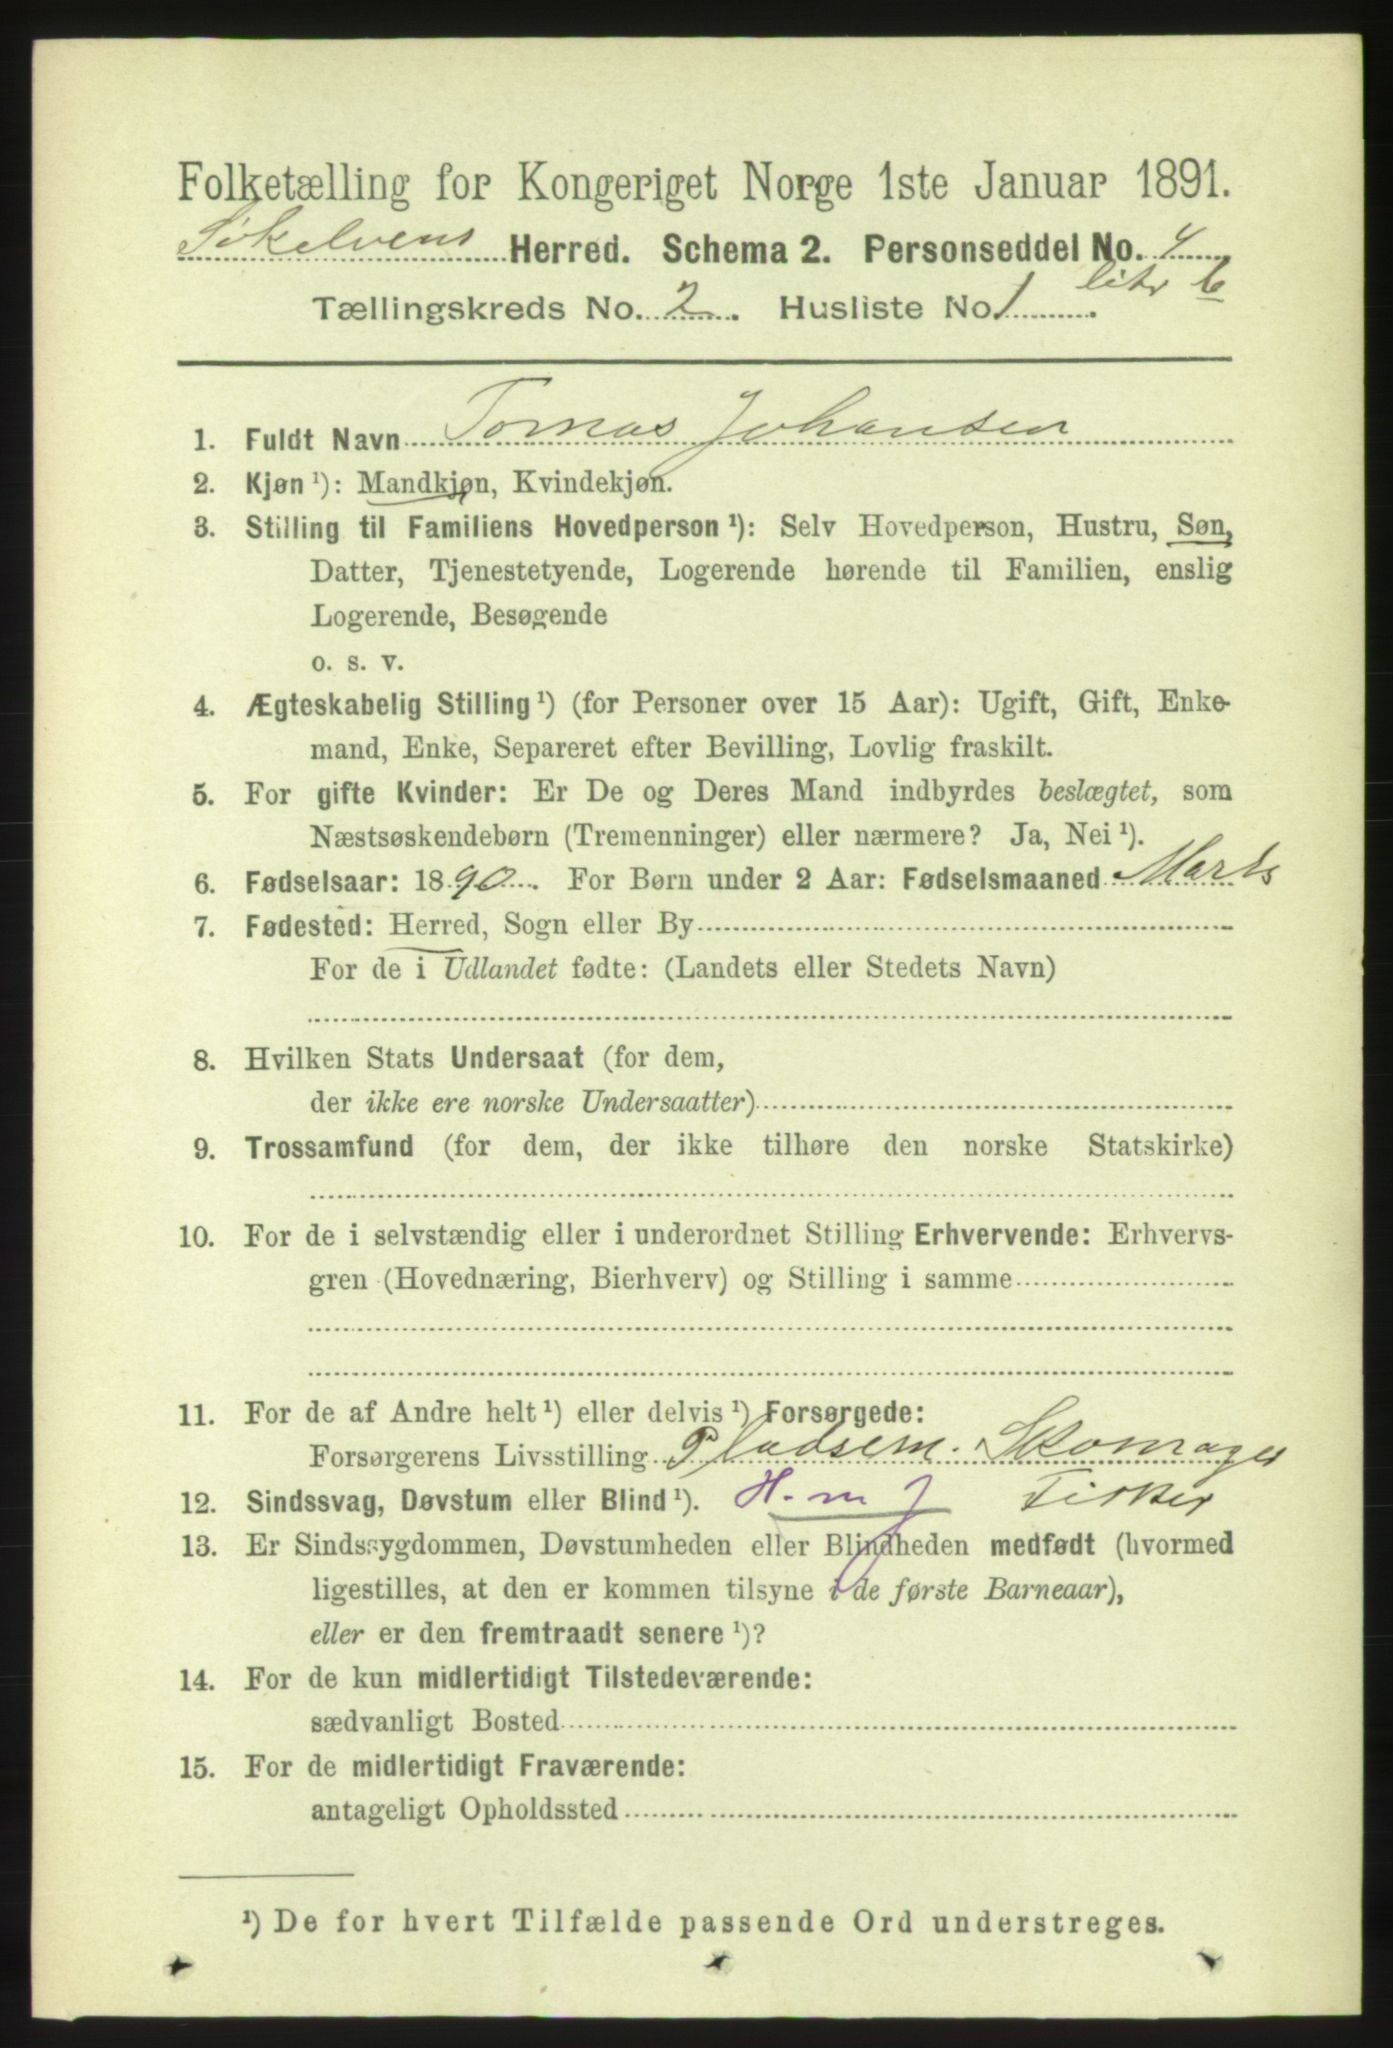 Folketælling for Kongeriget Norge 1ste Januar 1891.
Søkelvens Herred. Schema 2. Personseddel No. 4
Tællingskreds No. 2. Husliste No 1 litr b.
1. Fuldt Navn Tomas Johansen
2. Kjøn ¹): Mandkjøn, Kvindekjøn.
3. Stilling til Familiens Hovedperson ¹): Selv Hovedperson, Hustru, Søn,
Datter, Tjenestetyende, Logerende hørende til Familien, enslig
Logerende, Besøgende
o. s. v.
4. Ægteskabelig Stilling ¹) (for Personer over 15 Aar): Ugift, Gift, Enke-
mand, Enke, Separeret efter Bevilling, Lovlig fraskilt.
5. For gifte Kvinder: Er De og Deres Mand indbyrdes beslægtet, som
Næstsøskendebørn (Tremenninger) eller nærmere? Ja, Nei ¹).
6. Fødselsaar: 1890. For Børn under 2 Aar: Fødselsmaaned Marts
7. Fødested: Herred, Sogn eller By
For de i Udlandet fødte: (Landets eller Stedets Navn)
8. Hvilken Stats Undersaat (for dem,
der ikke ere norske Undersaatter)
9. Trossamfund (for dem, der ikke tilhøre den norske Statskirke)
10. For de i selvstændig eller i underordnet Stilling Erhvervende: Erhvervs-
gren (Hovednæring, Bierhverv) og Stilling i samme
11. For de af Andre helt ¹) eller delvis ¹) Forsørgede:
Forsørgerens Livsstilling Pladsem. Skomager
12. Sindssvag, Døvstum eller Blind ¹). H. m J Fisker
13. Er Sindssygdommen, Døvstumheden eller Blindheden medfødt (hvormed
ligestilles, at den er kommen tilsyne i de første Barneaar),
eller er den fremtraadt senere ¹)?
14. For de kun midlertidigt Tilstedeværende:
sædvanligt Bosted
15. For de midlertidigt Fraværende:
antageligt Opholdssted
¹) De for hvert Tilfælde passende Ord understreges.